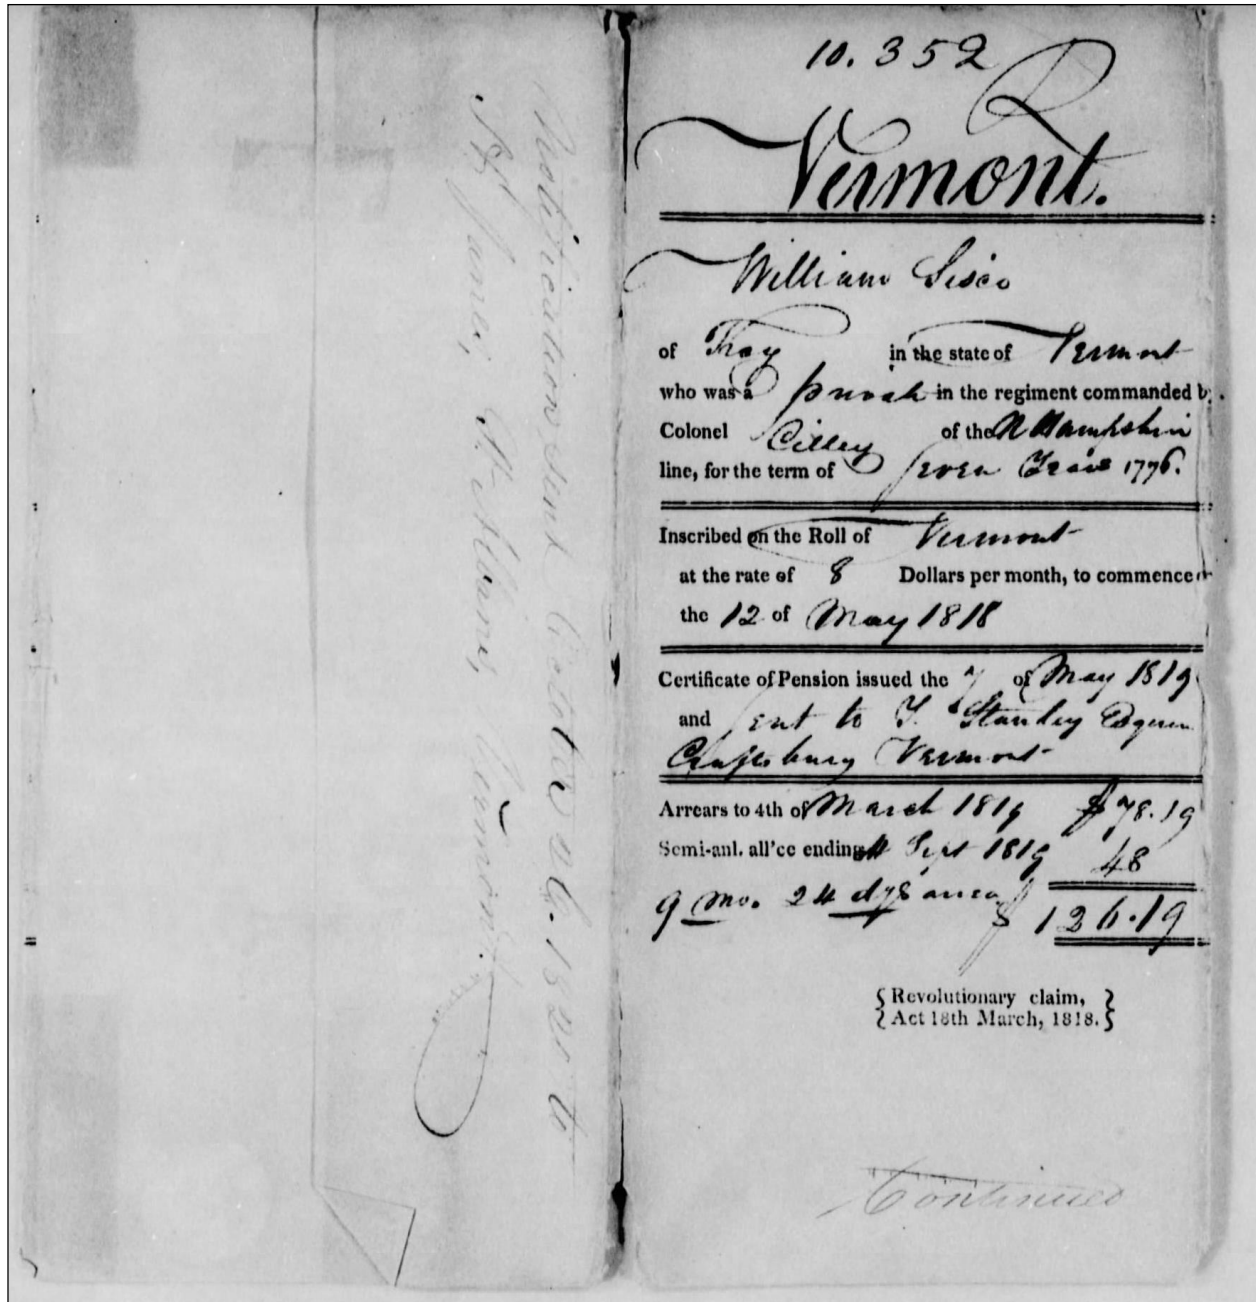 10.352
Vermont.
William Sisco
of Troy in the state of Vermont
who was a private in the regiment commanded by
Colonel Cilley of the N Hampshire
line, for the term of seven Years 1776.
Inscribed on the Roll of Vermont
at the rate of 8 Dollars per month, to commence on
the 12 of May 1818
Certificate of Pension issued the 7 of May 1819
and sent to T. Stanley Esquire
Craftsbury Vermont
Arrears to 4th of March 1819 $78.19
Semi-anl. all'ce ending 4 Sept 1819 48
9 mo. 24 dys $126.19
{Revolutionary claim,}
{Act 18th March, 1818.}
Continued
Notification sent October 26. 1820 to
James, St Albans, Vermont